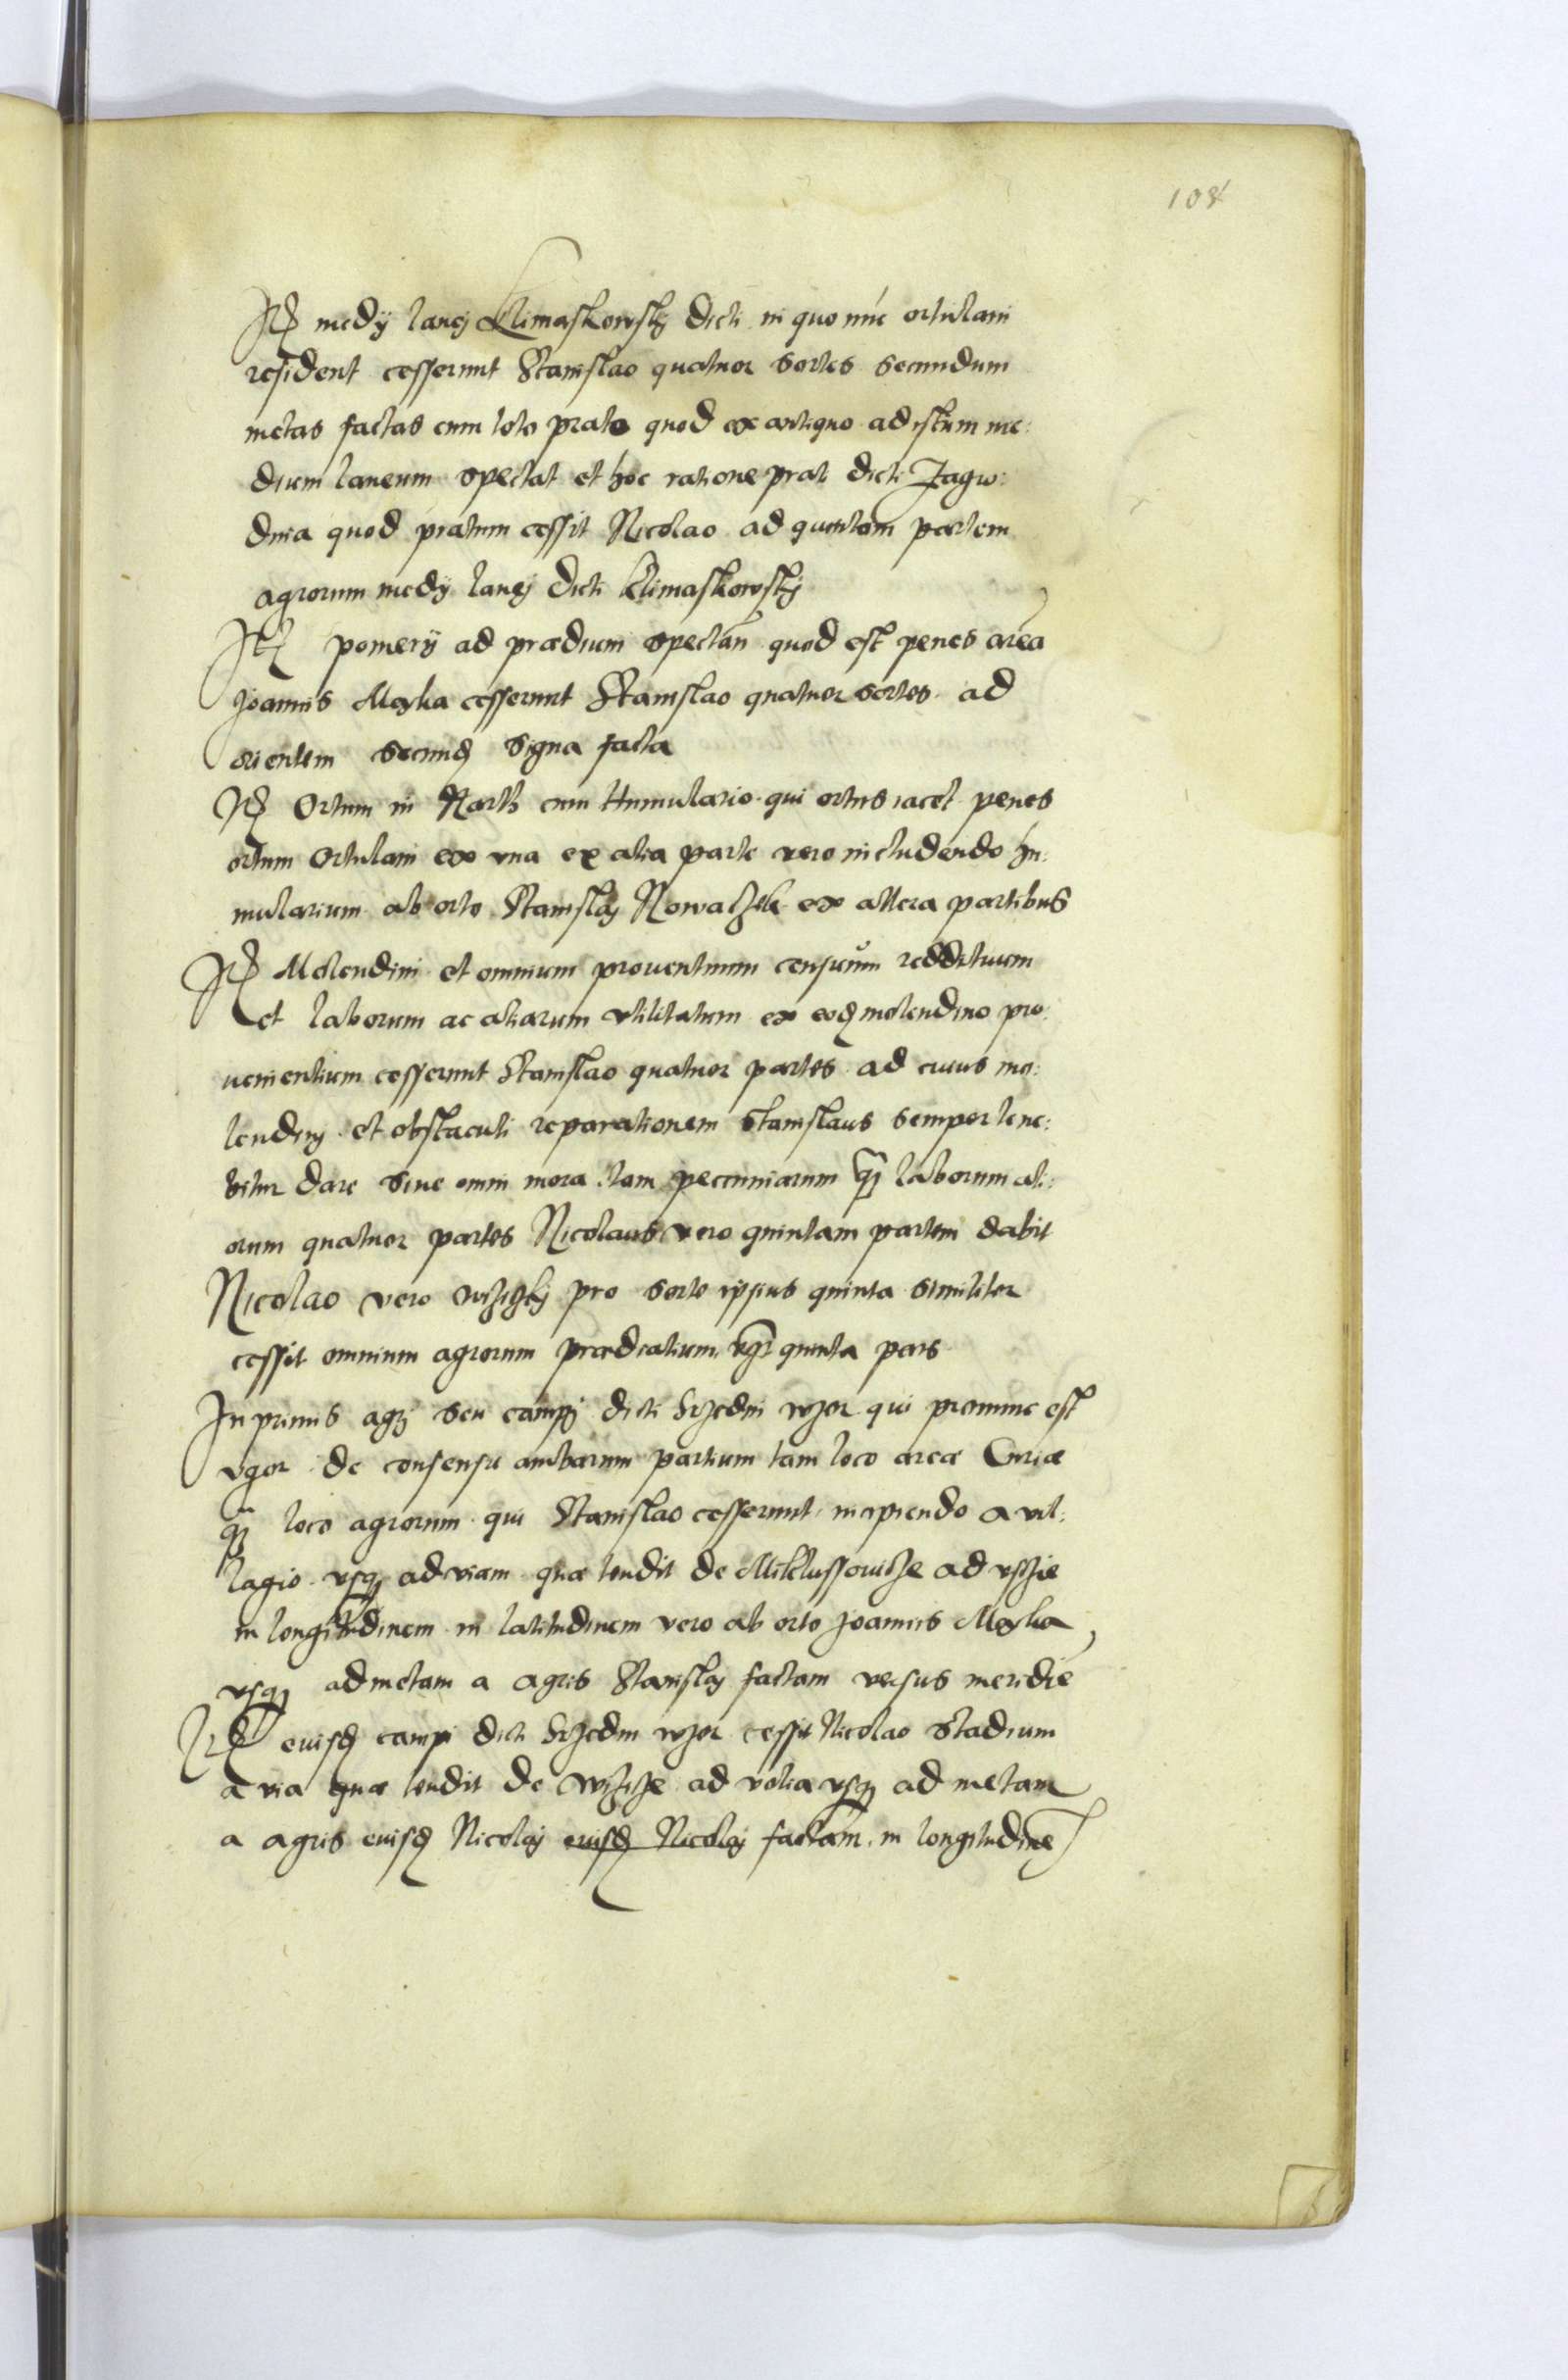 108
Itē medÿ lanej Klimaskowskij dicti in quo nūc ortulani
resident cesserunt Stanislao quatuor sortes secundum
metas factas cum toto prato quod ex antiquo ad istum me:
dium laneum spectat et hoc ratione prati dicti Jagw:
dnia quod pratum cessit Nicolao ad quintam partem
agrorum medÿ lanej dicti Klimaskowskij
Itē pomerÿ ad prædium spectan̄ quod est penes areā
Joannis Mayka cesserunt Stanislao quatuor sortes ad
orientem secund signa facta
Itē Ortum in Narth cum Humulario qui ortus iacet penes
ortum Ortulani ex vna ex alia parte vero includendo hu:
mularium ab orto Stanislaj Nowaczek ex altera partibus
Itē Molendini et omnium prouentuum censuum reddituum
et laborum ac aliarum vtilitatum ex eod molendino pro:
uenientium cesserunt Stanislao quatuor partes ad cuius mo:
lendinj et obstaculi reparationem Stanislaus semper tene:
bitur dare sine omni mora tam pecuniarum q̄ laborum ali:
orum quatuor partes Nicolaus vero quintam partem dabit
Nicolao vero pro sorte ipsius quinta similiter
cessit omnium agrorum prædialium quinta pars
In primis agri seu campj dicti Srzedni wjor qui pronunc est
vgor de consensu ambarum partium tam loco areæ Curiæ
q̄ loco agrorum qui Stanislao cesserunt incipiendo a vil:
lagio vsq ad viam quæ tendit de Miklussowicze ad vsczie
in longitudinem in latitudinem vero ab orto Joannis Mayka
vsq ad metam a agris Stanislaj factam versus meridiē
Itē euisd campi dicti Srzedni wjor cessit Nicolao stadium
a via quæ tendit de ad volia vsq ad metam
a agris euisd Nicolaj euisd Nicolaj factam in longitudinē